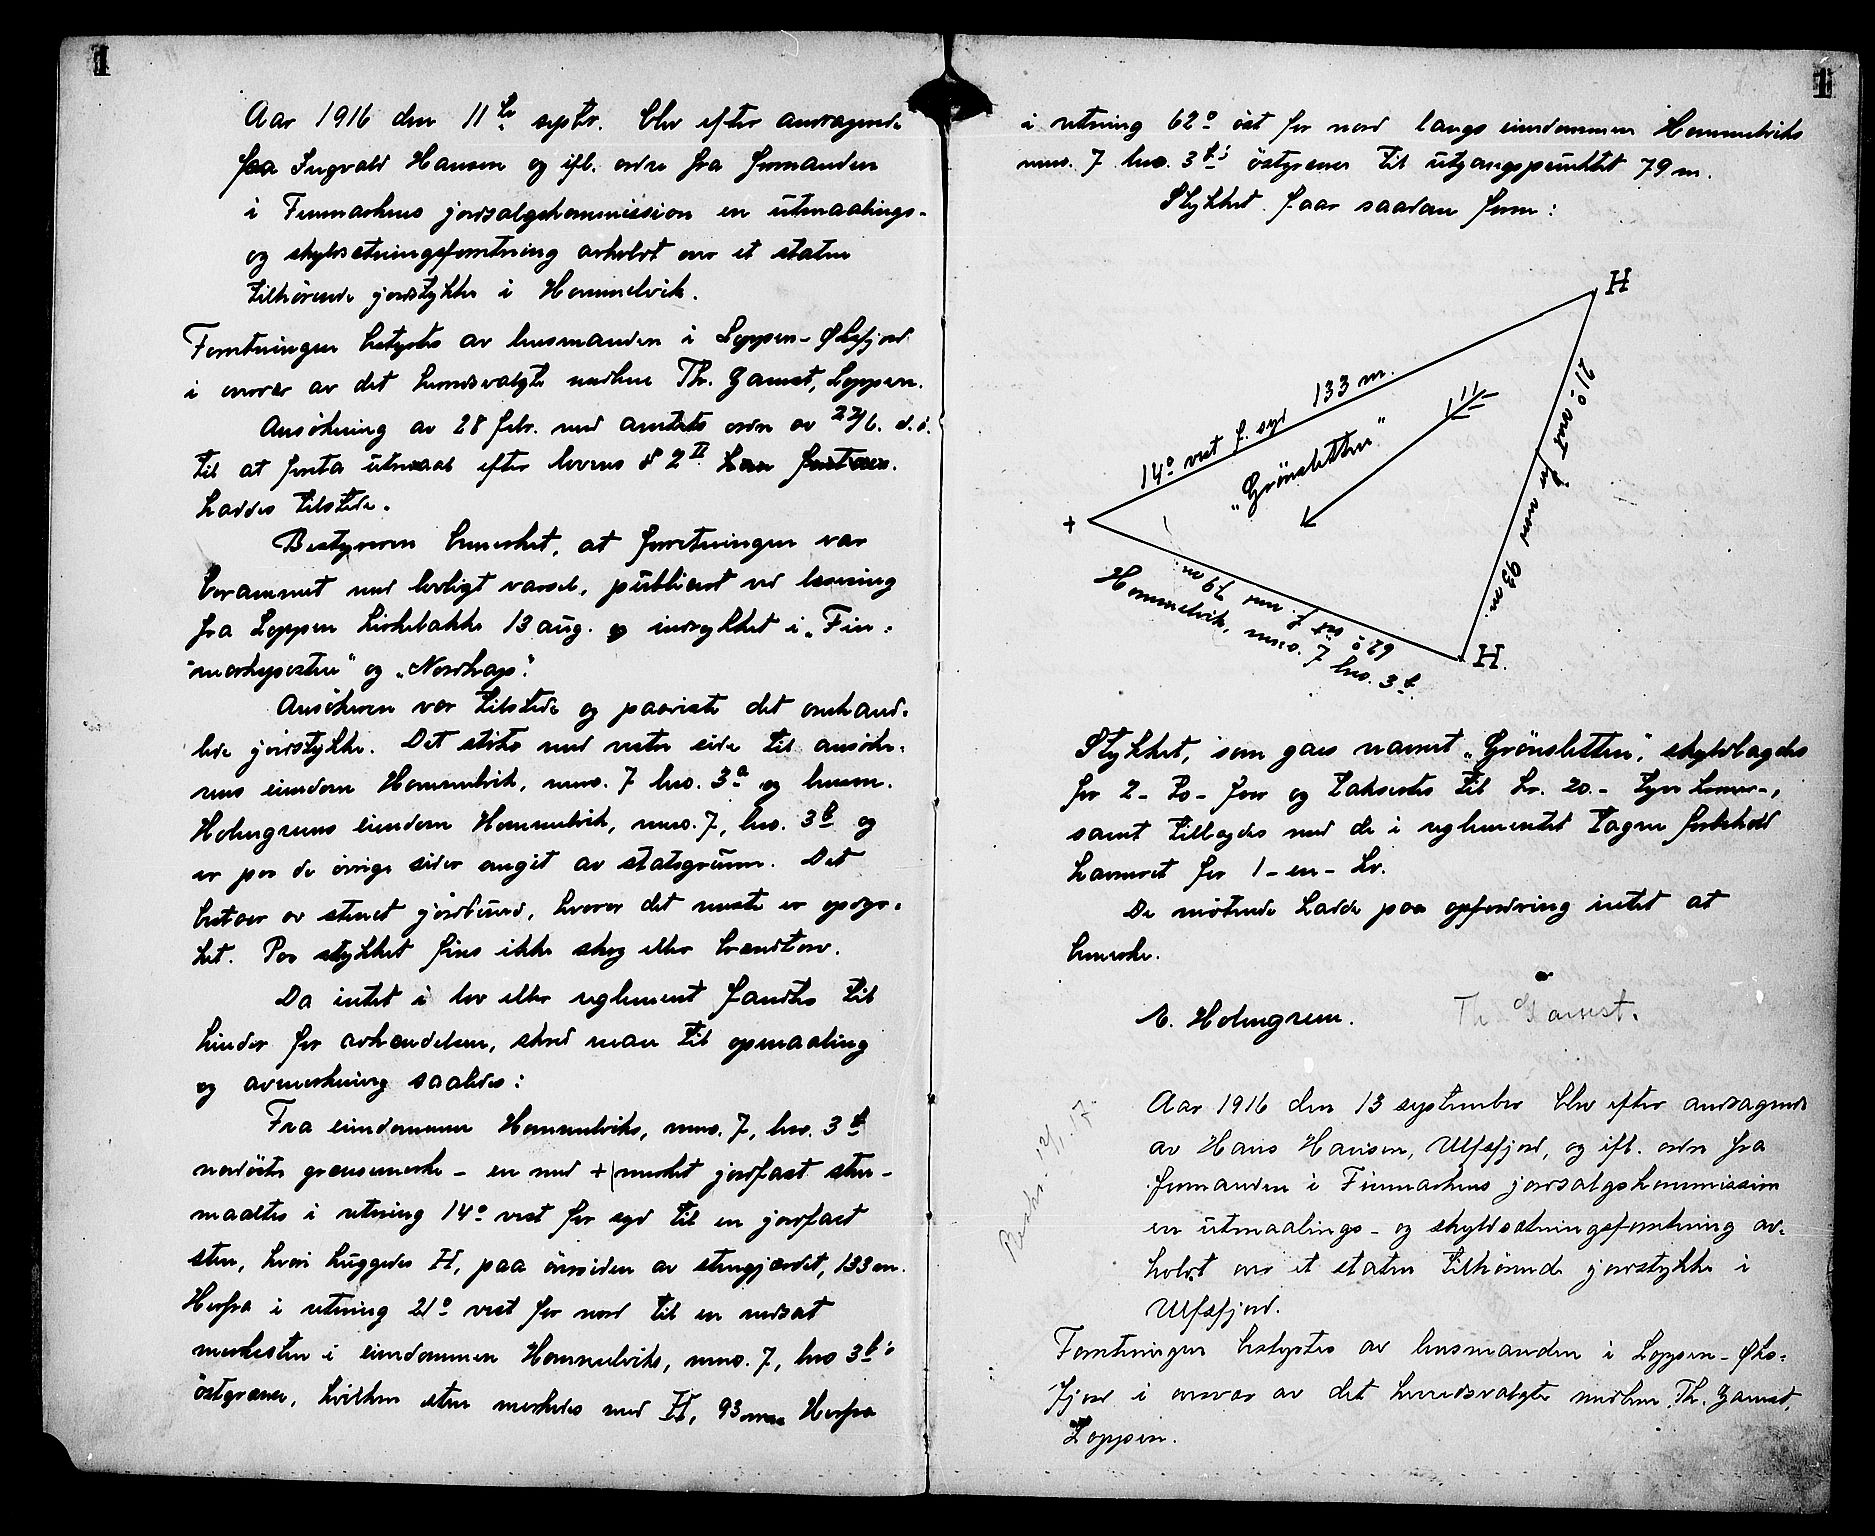 1
Aar 1916 den 11te septbr. blev efter andragende
fra Ingvald Hansen og ifl. ordre fra formanden
i Finmarkens jordsalgskommission en utmaalings-
og skyldsætningsforretning avholdt over et staten
tilhørende jordstykke i Hommelvik.
Forretningen bestyrtes av lensmanden i Loppen-Øksfjord
i nærvær av det herredsvalgte medlem Th. Gamst, Loppen.
Ansökning av 28 febr. med amtets ordre av 22/6. d.å.
til at foreta utmaal efter lovens § 2 II
haddes tilstede.
Bestyreren bemerket, at forretningen var
berammet med lovligt varsel, publicert ved læsning
fra Loppen kirkebakke 13 aug. og indrykket i „Fin-
marksposten" og „Nordkap".
Ansökeren var tilstede og paaviste det omhand-
lede jordstykke. Det støter med vestre side til ansöke-
rens eiendom Hommelvik, mno. 7 lno. 3a og lensm.
Holmgrens eiendom Hommelvik, mno. 7, lno. 3b og
er paa de øvrige sider omgit av statsgrund. Det
bestaar av stenet jordbund, hvorav det meste er opdyr-
ket. Paa stykket fins ikke skog eller brændtorv.
Da intet i lov eller reglement fandtes til
hinder for avhændelsen, skred man til opmaaling
og avmerkning saaledes:
Fra eiendommen Hommelviks, mno. 7, lno. 3b
nordöstre grænsemerke - en med + merket jordfast sten -
maaltes i retning 14° vest for syd til en jordfast
sten, hvori huggedes H, paa översiden av stengjærdet, 133 m.
Herfra i retning 21° vest for nord til en nedsat
merkesten i eiendommen Hommelviks, mno. 7, lno 3b's
östgrænse, hvilken sten merkedes med H, 93 m. Herfra
1
i retning 62° öst for nord langs eiendommen Hommelviks
mno. 7 lno. 3b's östgrænse til utgangspunktet 79 m.
Stykket faar saadan form:
H
14° vest f. syd 133 m.
„Grönsletten"
21° vest for nord 93 m.
+
62° öst f. nord 79 m.
Hommelvik, mno. 7 lno. 3b.
H.
Stykket, som gaes navnet „Grönsletten", skyldlagdes
for 2 - to - øre og taksertes til kr. 20.- tyve kroner-,
samt tillagdes med de i reglementet tagne forbehold
havneret for 1 - en - ko.
De møtende hadde paa opfordring intet at
bemerke.
A. Holmgren.
Th Gamst.
Aar 1916 den 13 september blev efter andragende
av Hans Hansen, Ulfsfjord, og ifl. ordre fra
formanden i Finmarkens jordsalgskommission
en utmaalings- og skyldsætningsforretning av-
holdt over et staten tilhørende jordstykke i
Ulfsfjord.
Forretningen bestyrtes av lensmanden i Loppen-Øks-
fjord i nærvær av det herredsvalgte medlem Th. Gamst,
Loppen.